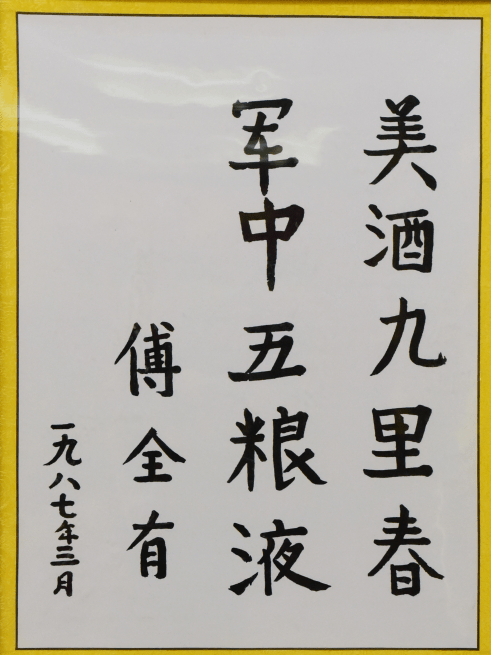 美酒九里春
军中五粮液
傅全有
一九八七年三月